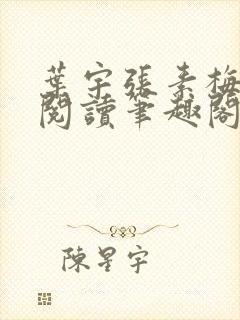 葉宇張素梅
閱讀筆趣閣
陳星宇